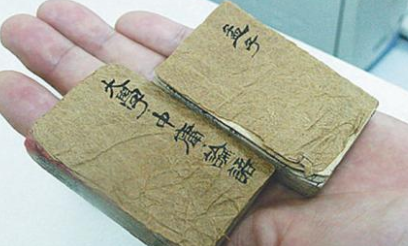 孟子
大學 中庸 論語